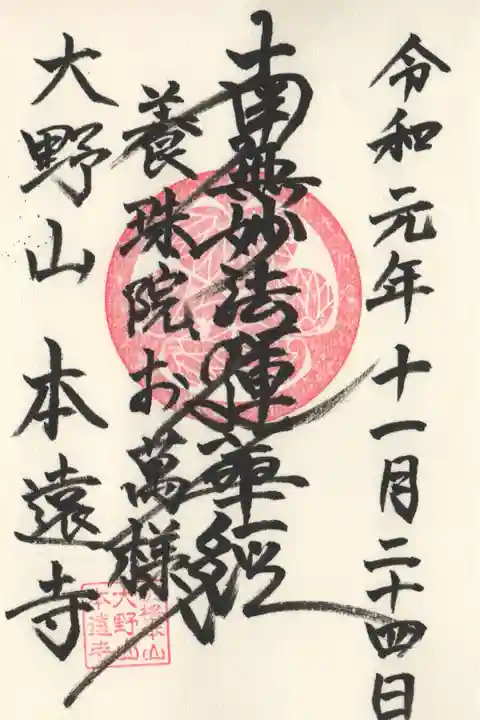 令和元年十一月二十四日
南無妙法蓮華経
養珠院お萬様
大野山本遠寺
大野山
本遠寺